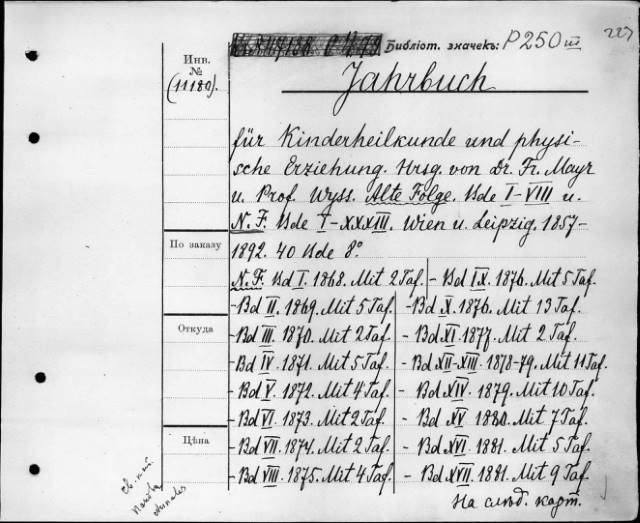 Библіот. значекъ: P250 III
227
Инв. №
(11180).
Jahrbuch
für Kinderheilkunde und physi-
sche Erziehung. Hrsg. von Dr. Fr. Mayr
u. Prof. Wyss. Alte Folge. Bde I-VIII u.
N. F. Bde I-XXXIII. Wien u. Leipzig. 1857-
1892. 40 Bde 8°
По заказу
Откуда
Цѣна
N. F. Bd I. 1868. Mit 2 Taf.
- Bd II. 1869. Mit 5 Taf.
- Bd III. 1870. Mit 2 Taf
- Bd IV. 1871. Mit 5 Taf.
- Bd V. 1872. Mit 4 Taf.
- Bd VI. 1873. Mit 2 Taf.
- Bd VII. 1874. Mit 2 Taf.
- Bd VIII. 1875. Mit 4 Taf.
- Bd IX. 1876. Mit 5 Taf.
- Bd X. 1876. Mit 13 Taf.
- Bd XI. 1877. Mit 2 Taf.
- Bd XII-XIII. 1878-79. Mit 11 Taf.
- Bd XIV. 1879. Mit 10 Taf.
- Bd XV. 1880. Mit 7 Taf.
- Bd XVI. 1881. Mit 5 Taf.
- Bd XVII. 1881. Mit 9 Taf.
На слѣд. карт.